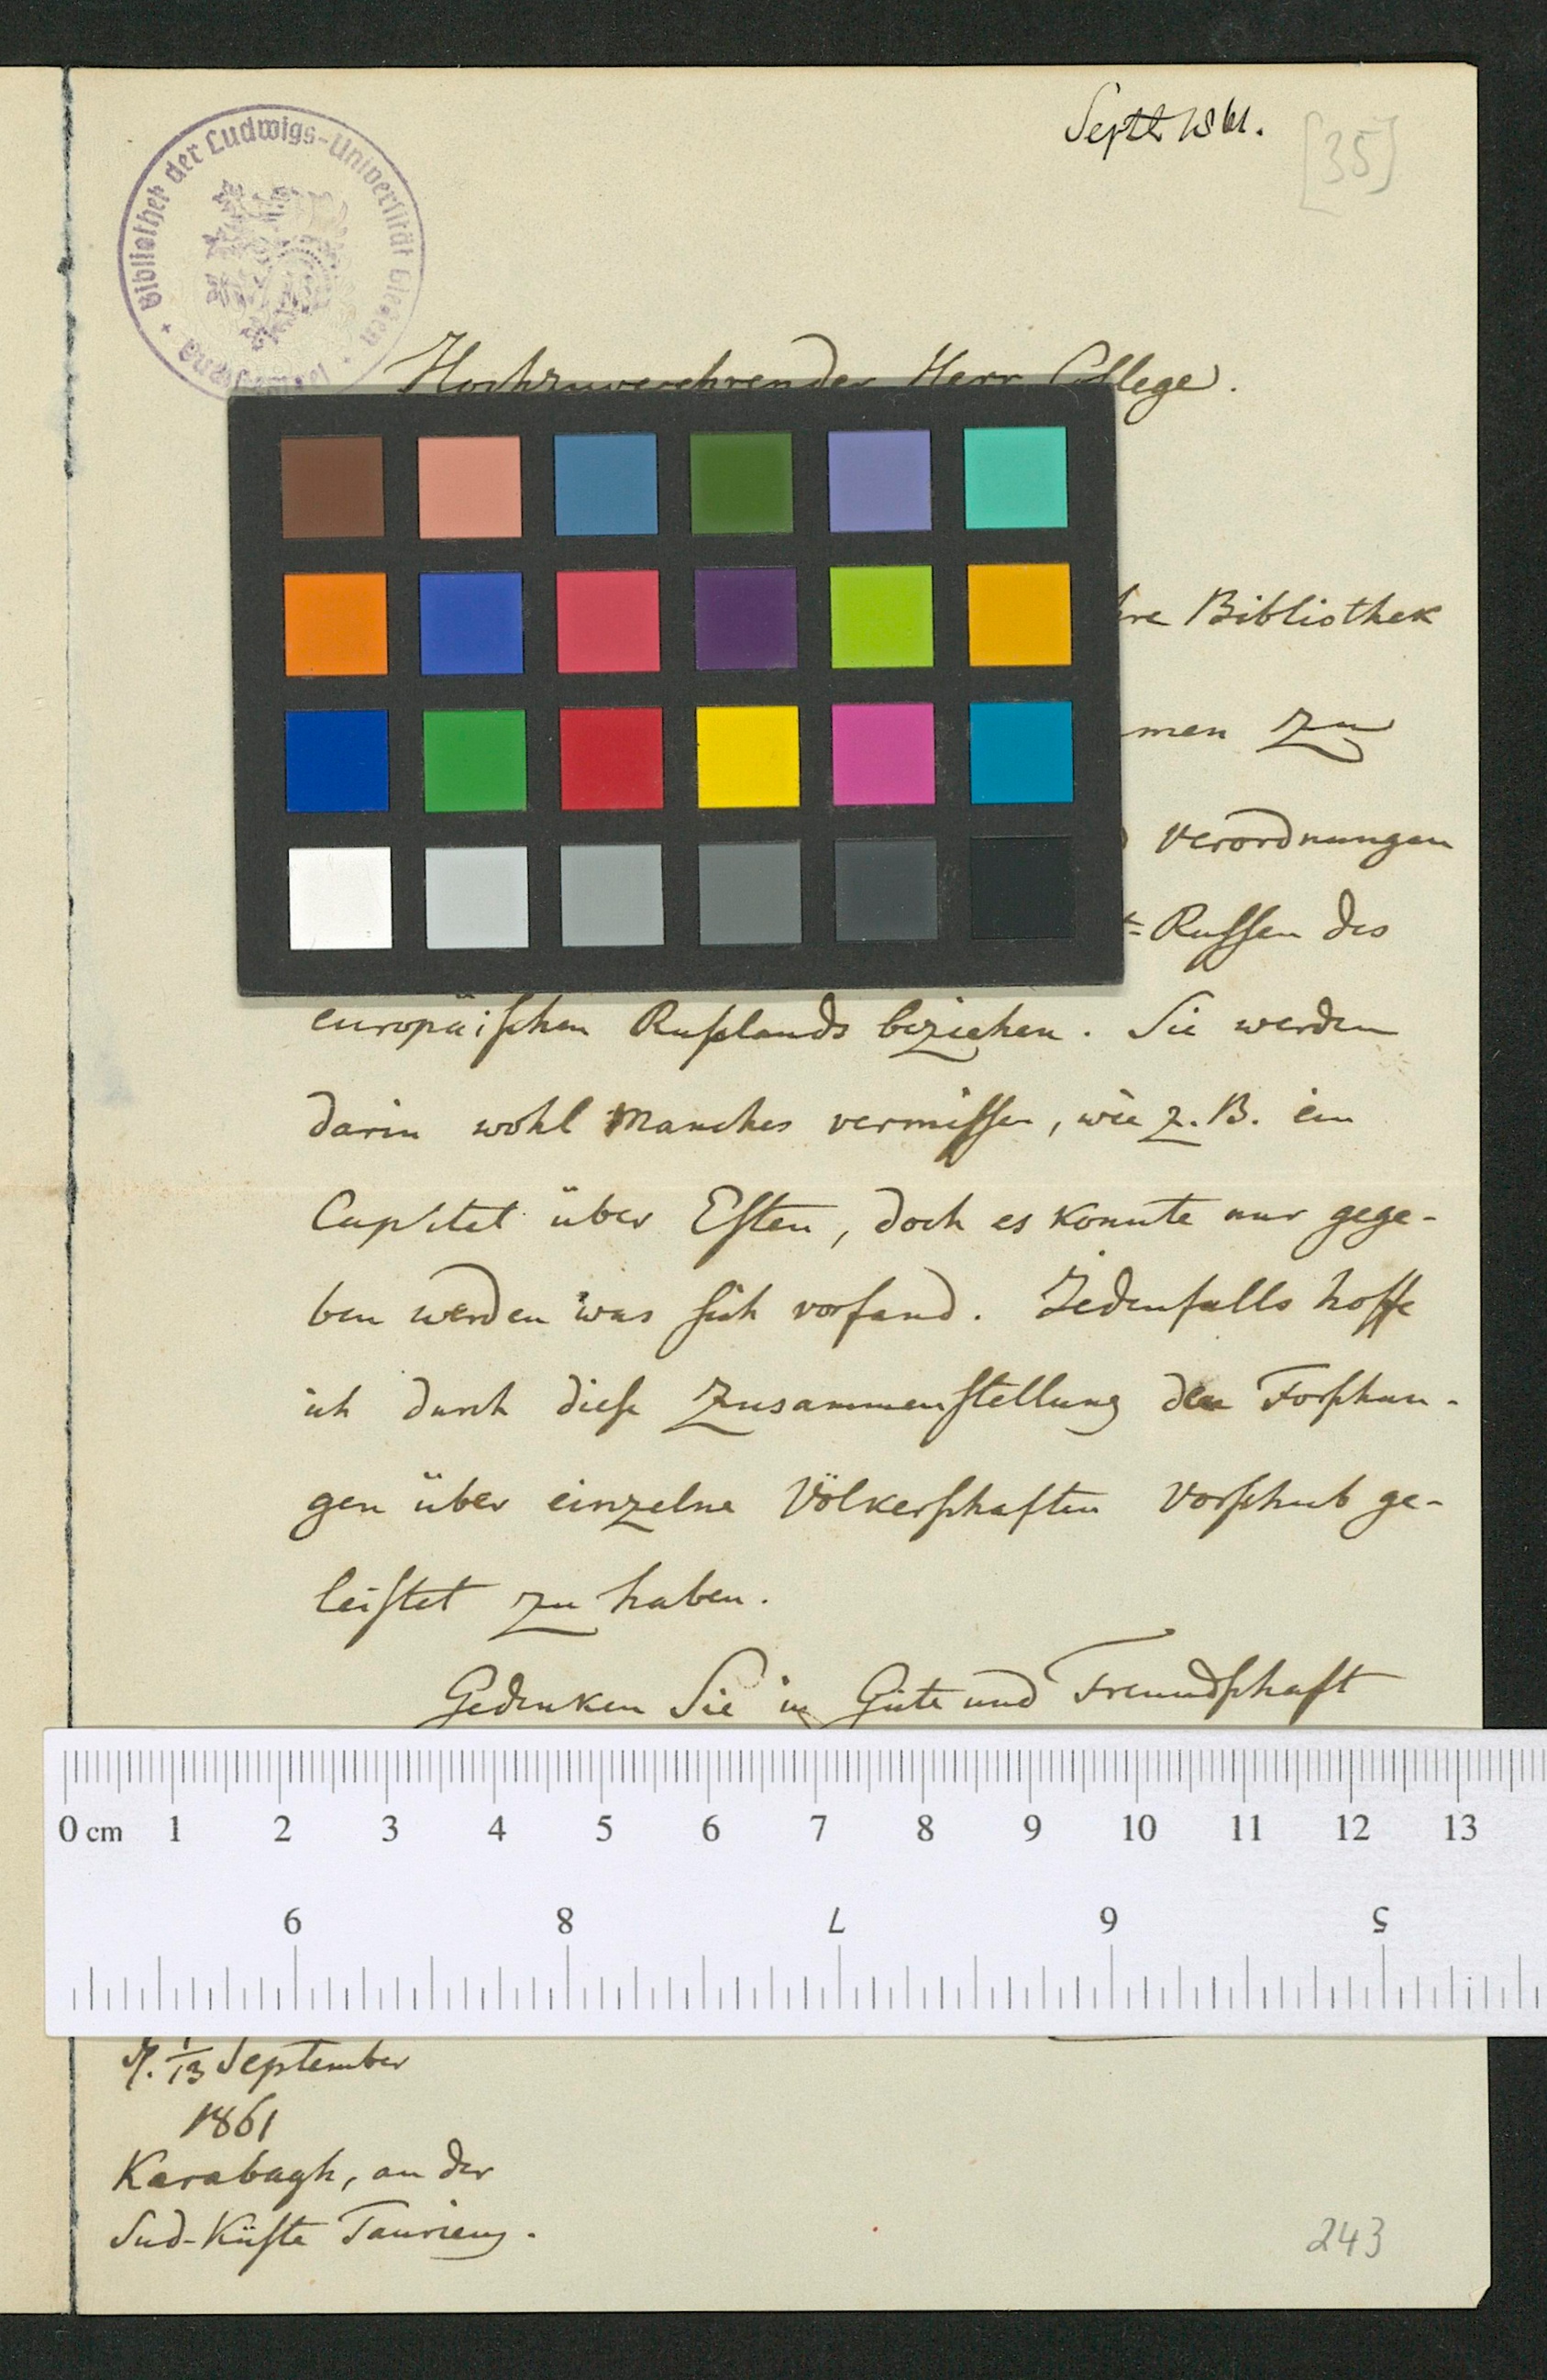 Septb 1861.
[35]
Bibliothek der Ludwigs-Universität Giessen
Hochzuverehrender Herr College.
Bibliothek
zu
Verordnungen
Russen des
europäischen Russlands beziehen. Sie werden
darin wohl Manches vermissen, wie z. B. ein
Capitel über Esten, doch es konnte nur gege-
ben werden was sich vorfand. Jedenfalls hoffe
ich durch diese Zusammenstellung den Forschun-
gen über einzelne Völkerschaften Vorschub ge-
leistet zu haben.
Gedenken Sie in Güte und Freundschaft
0 cm 1 2 3 4 5 6 7 8 9 10 11 12 13
9 8 7 6 5
1/13 September
1861
Karabagh, an der
Süd-Küste Tauriens.
243